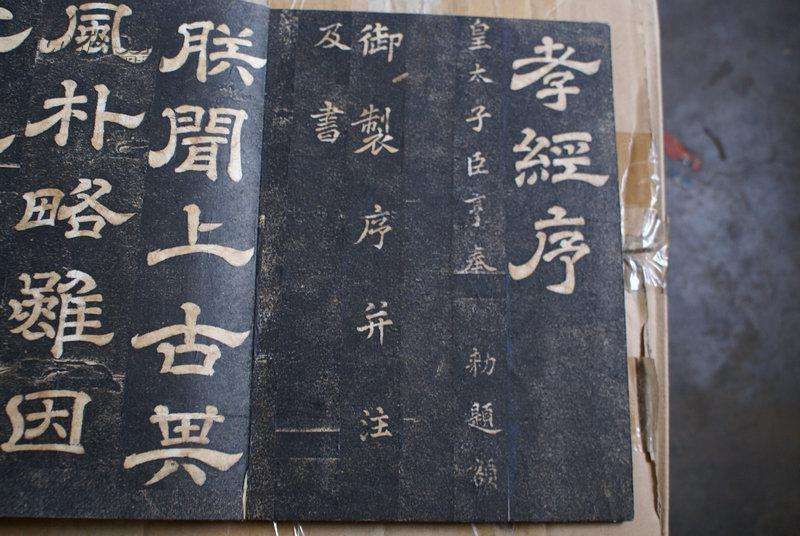 孝經序
皇太子臣亨奉 勑題額
御製序并注
及書
朕聞上古其
風朴略雖因